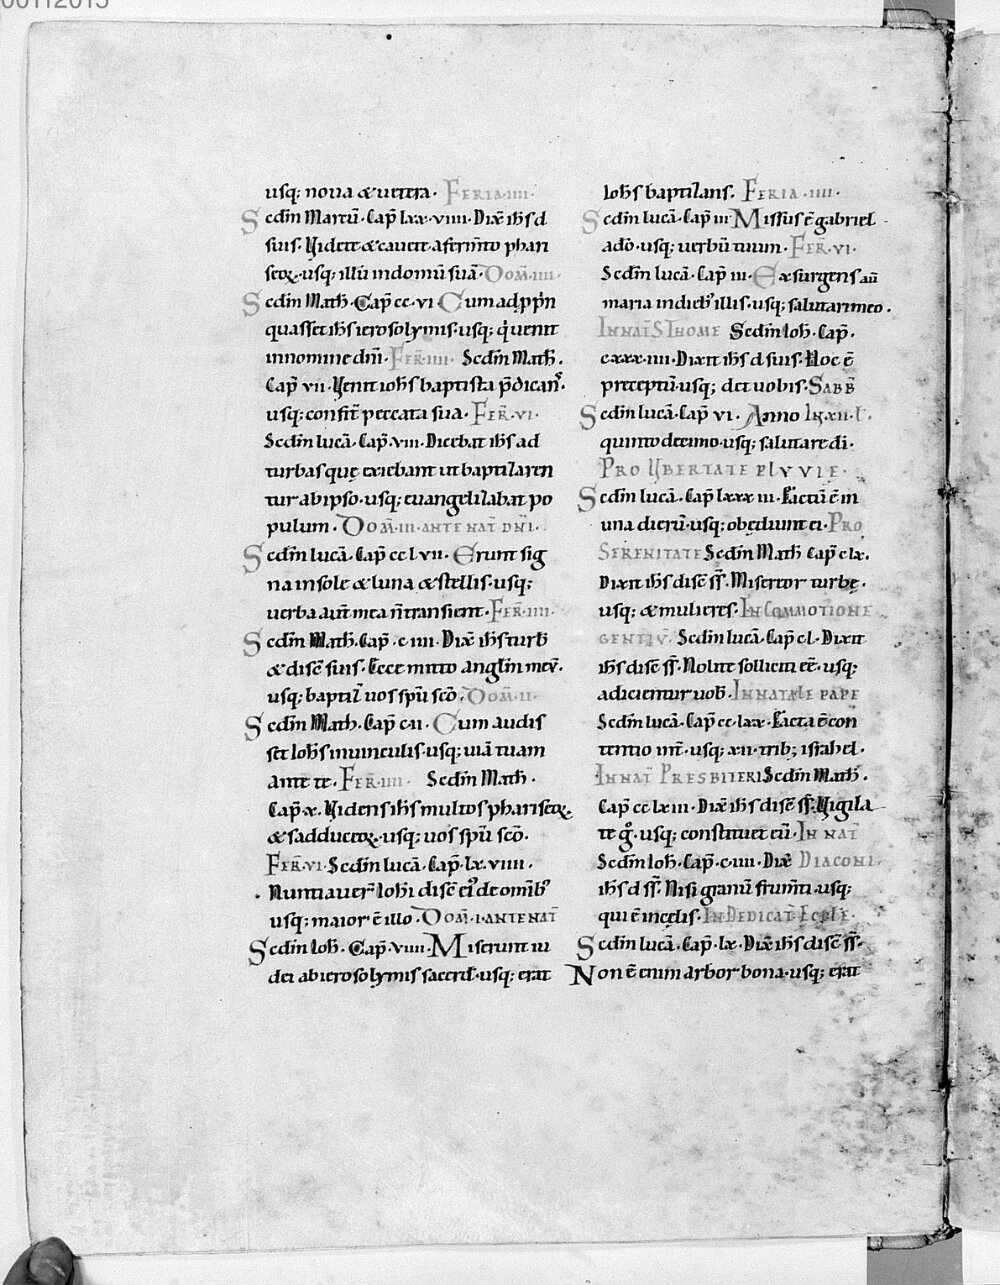 00112015
usq; noua & uetera. FERIA IIII.
Sedm Marcū. Cap̄ lxx.viiii. Dix̄ ih̄s d
suis. Videte & cauete a ferm̄to phari
seoꝝ. usq; illū in domū suā. DOM̄. IIII.
Sedm Math̄. Cap̄ cc.vi Cum adp̄pin
quasset ih̄s ierosolymis. usq; q̇ uenit
in nomine dn̄i. FER̄. IIII. Sedm̄ Math̄.
Cap̄ vii. Venit ioh̄s baptista p̄dican̄s.
usq; confit̄ peccata sua. FER̄. VI.
Sedm̄ lucā. Cap̄. viii. Dicebat ih̄s ad
turbas quę exiebant ut baptizaren
tur ab ipso. usq; euangelizabat po
pulum. DOM̄. III. ANTE NAT̄ DN̄I.
Sedm̄ lucā. Cap̄ cc lvii. Erunt sig
na in sole & luna & stellis. usq;
uerba aut̄ mea n̄ transient. FER̄. IIII.
Sedm̄ Math̄. Cap̄. c.iiii. Dix̄ ih̄s turb̄
& disc̄ suis. Ecce mitto angl̄m meū.
usq; baptiz̄ uos sp̄u sc̄o. DOM̄. II.
Sedm̄ Math̄. Cap̄ c.ii. Cum audis
set Ioh̄s in uinculis. usq; uiā tuam
ante te. FER̄. IIII. Sedm̄ Math̄.
Cap̄ x. Videns ih̄s multos phariseoꝝ
& sadduceoꝝ. usq; uos sp̄u sc̄o.
FER̄. VI. Sedm̄ lucā. Cap̄. lx.viiii.
Nuntiauer̄ Iohi disc̄ ei' de omib'
usq; maior ē illo. DOM̄. I. ANTE NAT̄
Sedm̄ Ioh̄. Cap̄. viiii. Miserunt iu
dei ab ierosolymis sacerd̄. usq; erat
Ioh̄s baptizans. FERIA. IIII.
Sedm̄ lucā. Cap̄ iii Missus ē gabriel
ad o. usq; uerbū tuum. FER̄. VI.
Sedm̄ lucā. Cap̄ iii. Exsurgens aū
maria in dieb' illis. usq; salutari meo.
IN NAT̄ S THOME Sedm̄ Ioh̄. Cap̄.
cxxx.iiii. Dixit ih̄s d suis. Hoc ē
preceptū. usq; det uobis. SABB̄
Sedm̄ lucā. Cap̄ vi. Anno
quinto decimo. usq; salutare di.
PRO VBERTATE PLVVIE.
Sedm̄ lucā. Cap̄ lxxx iii. Factū ē in
una dierū. usq; obediunt ei. PRO
SERENITATE Sedm̄ Math̄ Cap̄ c lx.
Dixit ih̄s disc̄ s̄s. Misereor turbę.
usq; & mulieres. IN COMMOTIONE
GENTIV̄. Sedm̄ lucā. Cap̄ c l. Dixit
ih̄s disc̄ s̄s. Nolite solliciti eē. usq;
adicientur uob̄. IN NATALE PAPE
Sedm̄ lucā. Cap̄ cc. lxx. Facta ē con
tentio int̄. usq; xii. trib; israhel.
IN NAT̄ PRESBITERI Sedm̄ Math̄.
Cap̄ cc lx iii. Dix̄ ih̄s disc̄ s̄s. Vigila
te g°. usq; constituet eū. IN NAT̄
Sedm̄ Ioh̄. Cap̄. c.iiii. Dix̄ DIACONI.
ih̄s d s̄s. Nisi granū frum̄ti. usq;
qui ē in celis. IN DEDICAT̄ ECCLE.
Sedm̄ lucā. Cap̄. lx. Dix̄ ih̄s disc̄ s̄s.
Non ē enim arbor bona. usq; erat